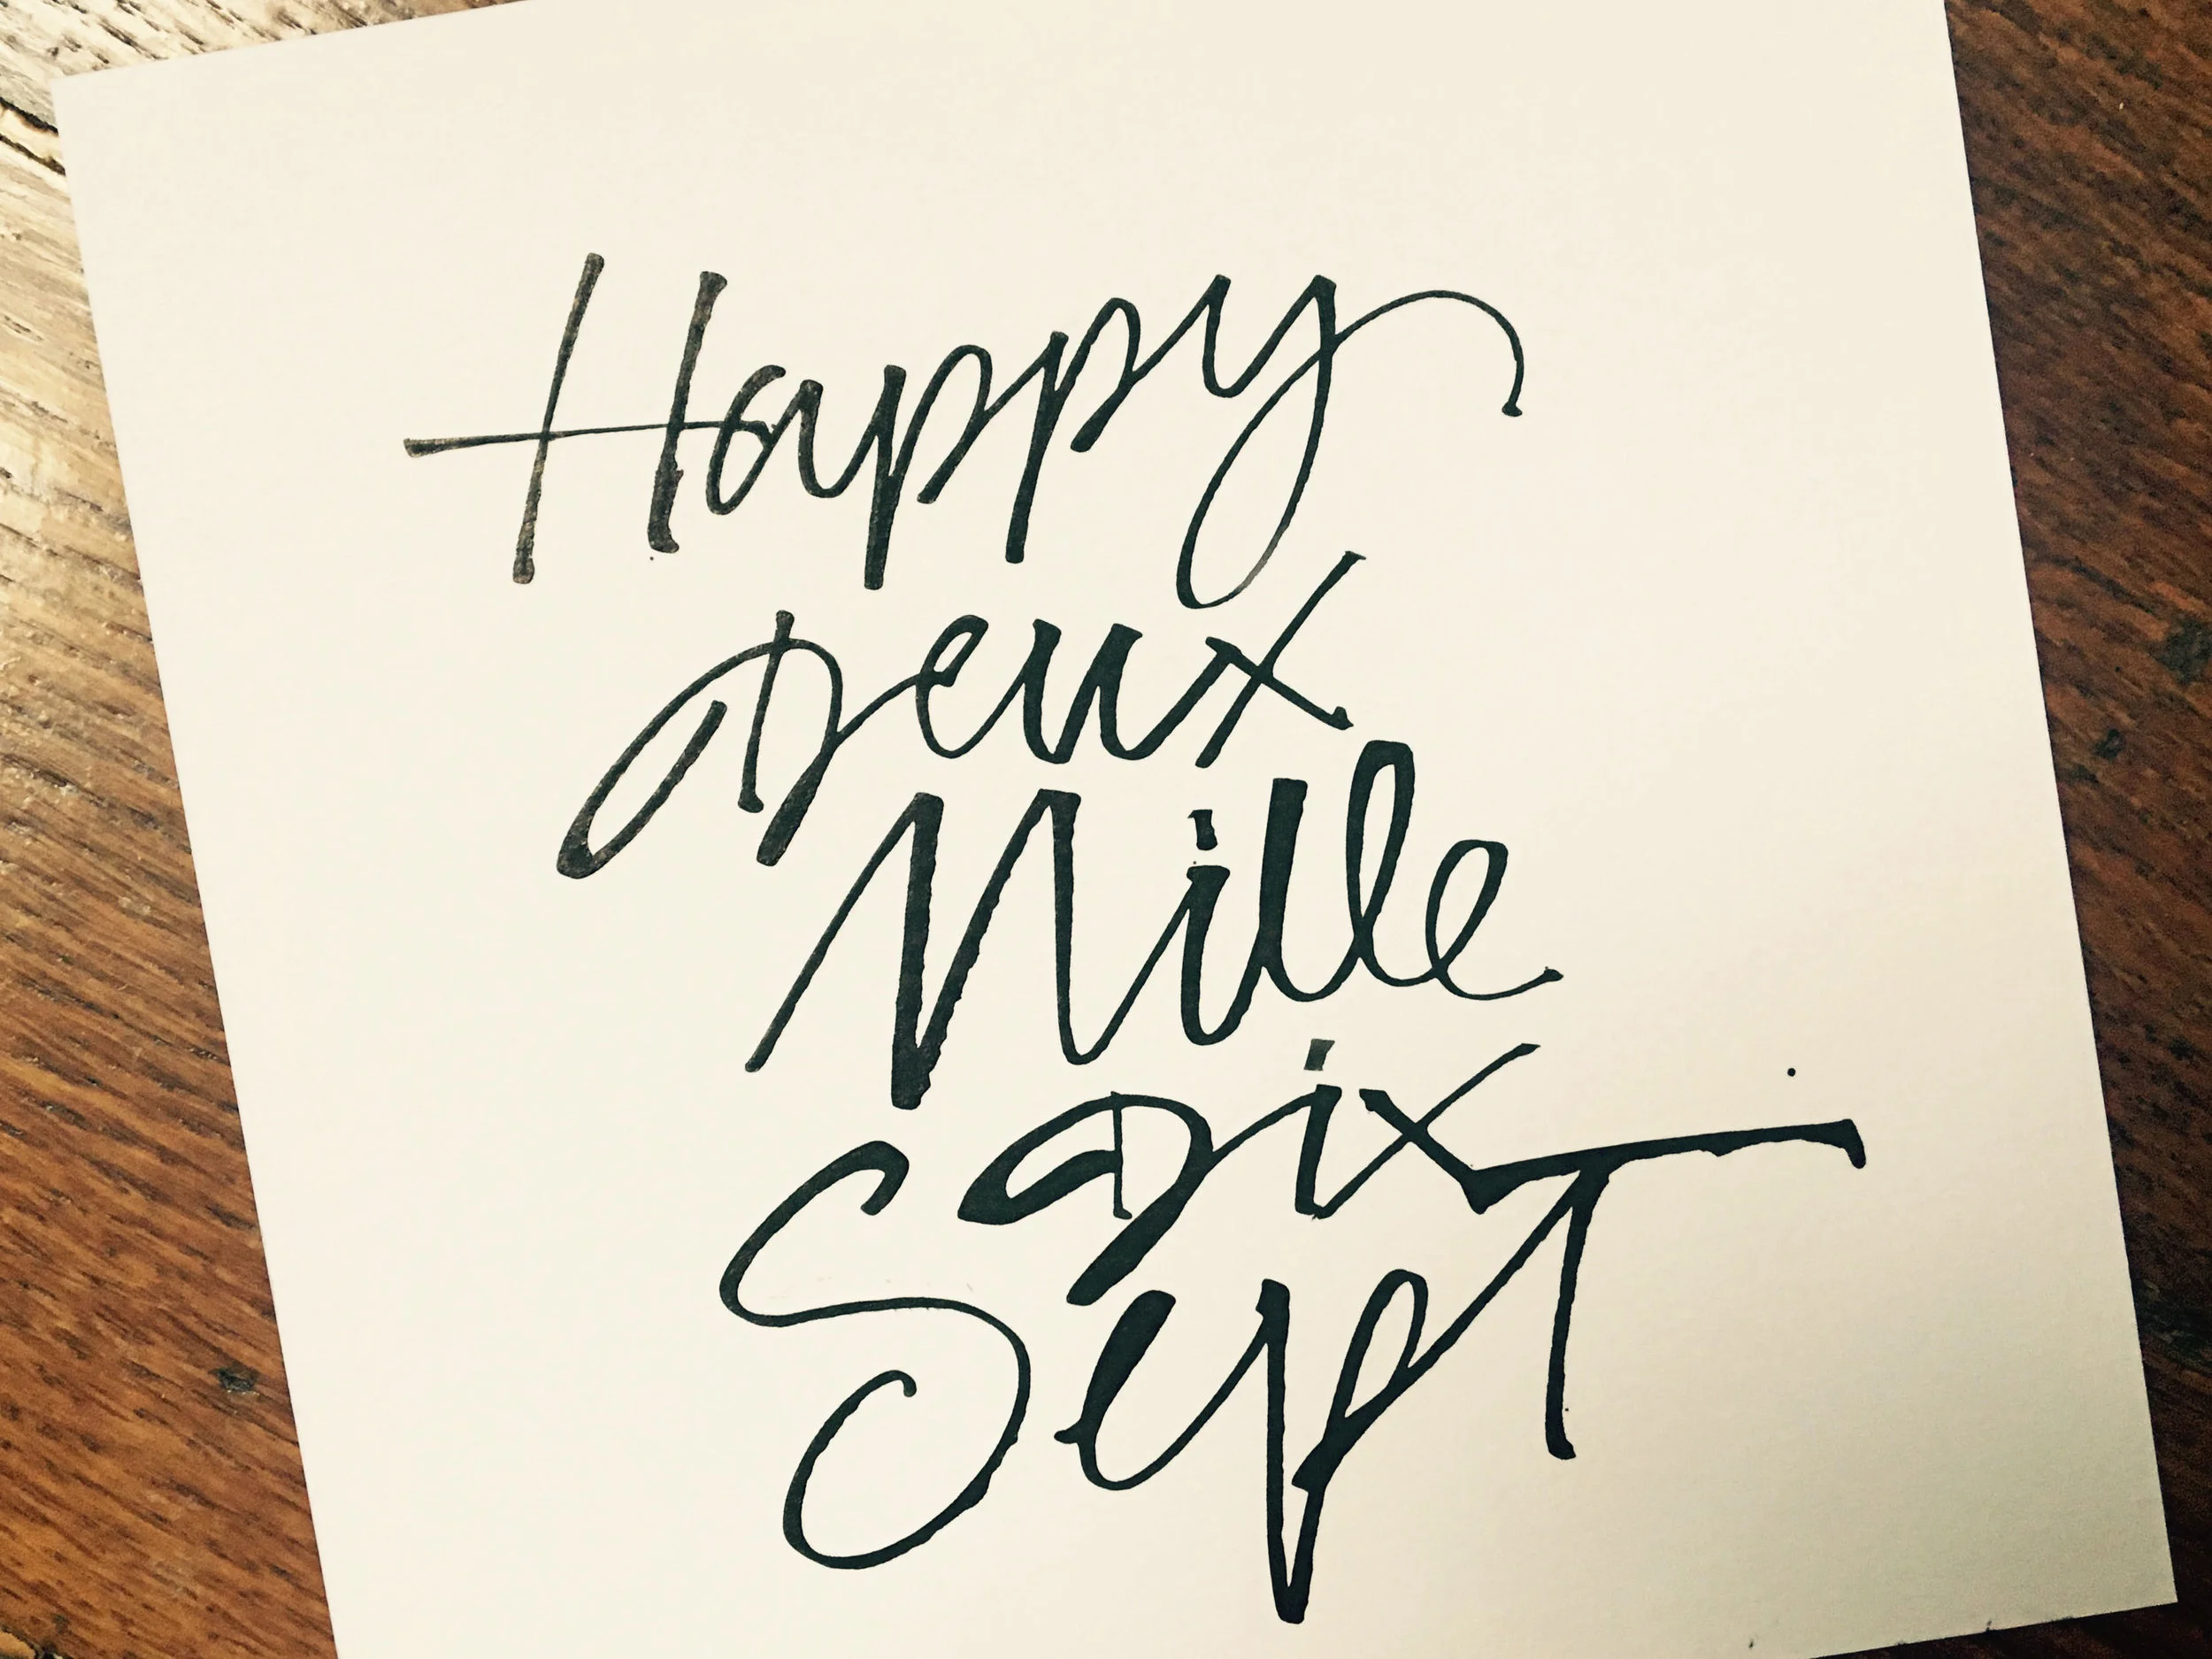 Happy
Deux
Mille
Dix
SepT